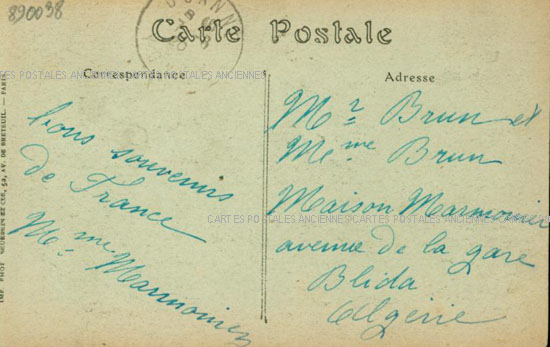 890038
Carte Postale
CARTES POSTALES ANCIENNES CARTES POSTALES ANCIENNES
Correspondance
Adresse
bons souvenirs
de France
Mme Marmonier
Mr Brun et
Mme Brun
Maison Marmonier
avenue de la gare
Blida
Algérie
CARTES POSTALES ANCIENNES CARTES POSTALES ANCIENNES
IMP. PHOT. NEURDEIN ET CIE, 52, AV. DE BRETEUIL. — PARIS